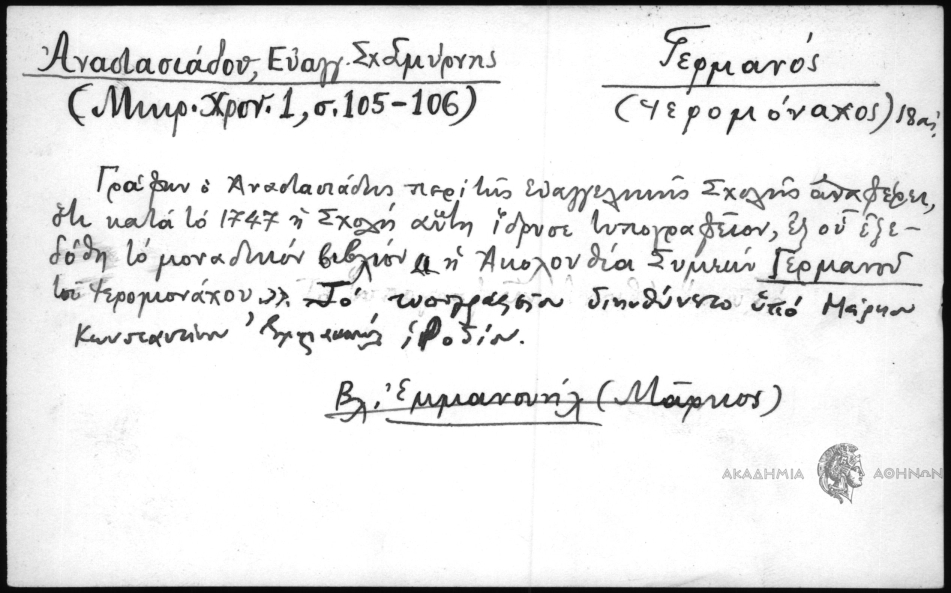 Ἀναστασιάδου, Εὐαγγ. Σχ. Σμύρνης
(Μικρ. Χρον. 1, σ. 105-106)
Γερμανός
(Ἱερομιόναχος) 18 αἰ.
Γράφων ὁ Ἀναστασιάδης περί τῆς Εὐαγγελικῆς Σχολῆς ἀναφέρει,
ὅτι κατά τό 1747 ἡ Σχολή αὕτη ἵδρυσε τυπογραφεῖον, ἐξ οὗ ἐξε-
δόθη τό μοναδικόν βιβλίον « ἡ Ἀκολουθία Συμεών Γερμανοῦ
τοῦ Ἱερομονάχου ». Τό τυπογραφεῖον διηυθύνετο ὑπό Μάρκου
Κωνσταντίνου Ῥοδίου.
Βλ. Ἐμμανουήλ (Μᾶρκος)
ΑΚΑΔΗΜΙΑ ΑΘΗΝΩΝ